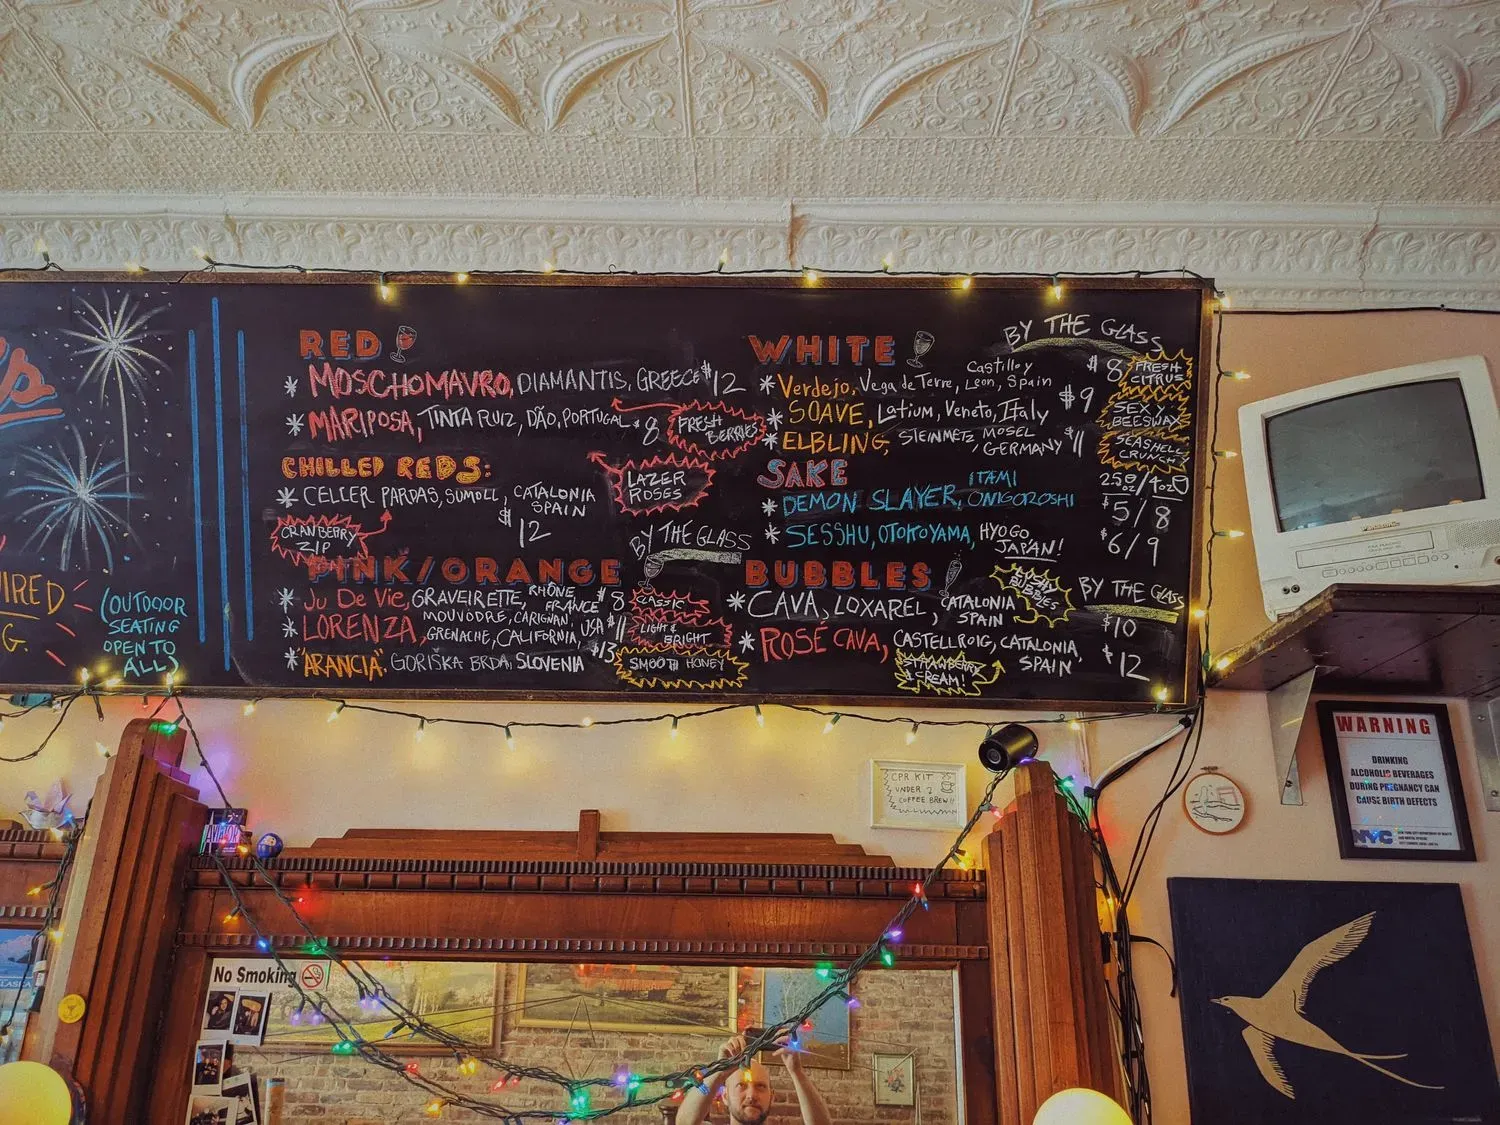 RED
* MOSCHOMAVRO, DIAMANTIS, GREECE $12
* MARIPOSA, TINTA RUIZ, DÃO, PORTUGAL $8
FRESH
BERRIES
CHILLED REDS:
LAZER
ROSES
* CELLER PARDAS, SUMOLL, CATALONIA
SPAIN
$12
CRANBERRY
ZIP
BY THE GLASS
PINK/ORANGE
* JU DE VIE, GRAVEIRETTE, RHÔNE,
FRANCE $8
CLASSIC
MOUVÓDRE, CARIGNAN,
* LORENZA, GRENACHE, CALIFORNIA, USA $11
LIGHT &
BRIGHT
* "ARANCIA", GORIŠKA BRDA, SLOVENIA $13
SMOOTH HONEY
WHITE
BY THE GLASS
* Verdejo, Vega de Terre, Castillo y
Leon, Spain $8
FRESH
CITRUS
* SOAVE, Latium, Veneto, Italy $9
SEXY
BEESWAX
* ELBLING, STEINMETZ, MOSEL
GERMANY $11
SEASHELL
CRUNCH
SAKE
25oz/4oz
* DEMON SLAYER, ITAMI
ONIGOROSHI $5/8
* SESSHU, OTOKOYAMA, HYOGO
JAPAN! $6/9
BUBBLES
BUBBLES
BY THE GLASS
* CAVA, LOXAREL, CATALONIA
SPAIN $10
* ROSÉ CAVA, CASTELLROIG, CATALONIA,
SPAIN $12
STRAWBERRY
CREAM!
UIRED
G.
(OUTDOOR
SEATING
OPEN TO
ALL)
CPR KIT
UNDER
COFFEE BREW!!
Panasonic
WARNING
DRINKING
ALCOHOLIC BEVERAGES
DURING PREGNANCY CAN
CAUSE BIRTH DEFECTS
NYC
No Smoking